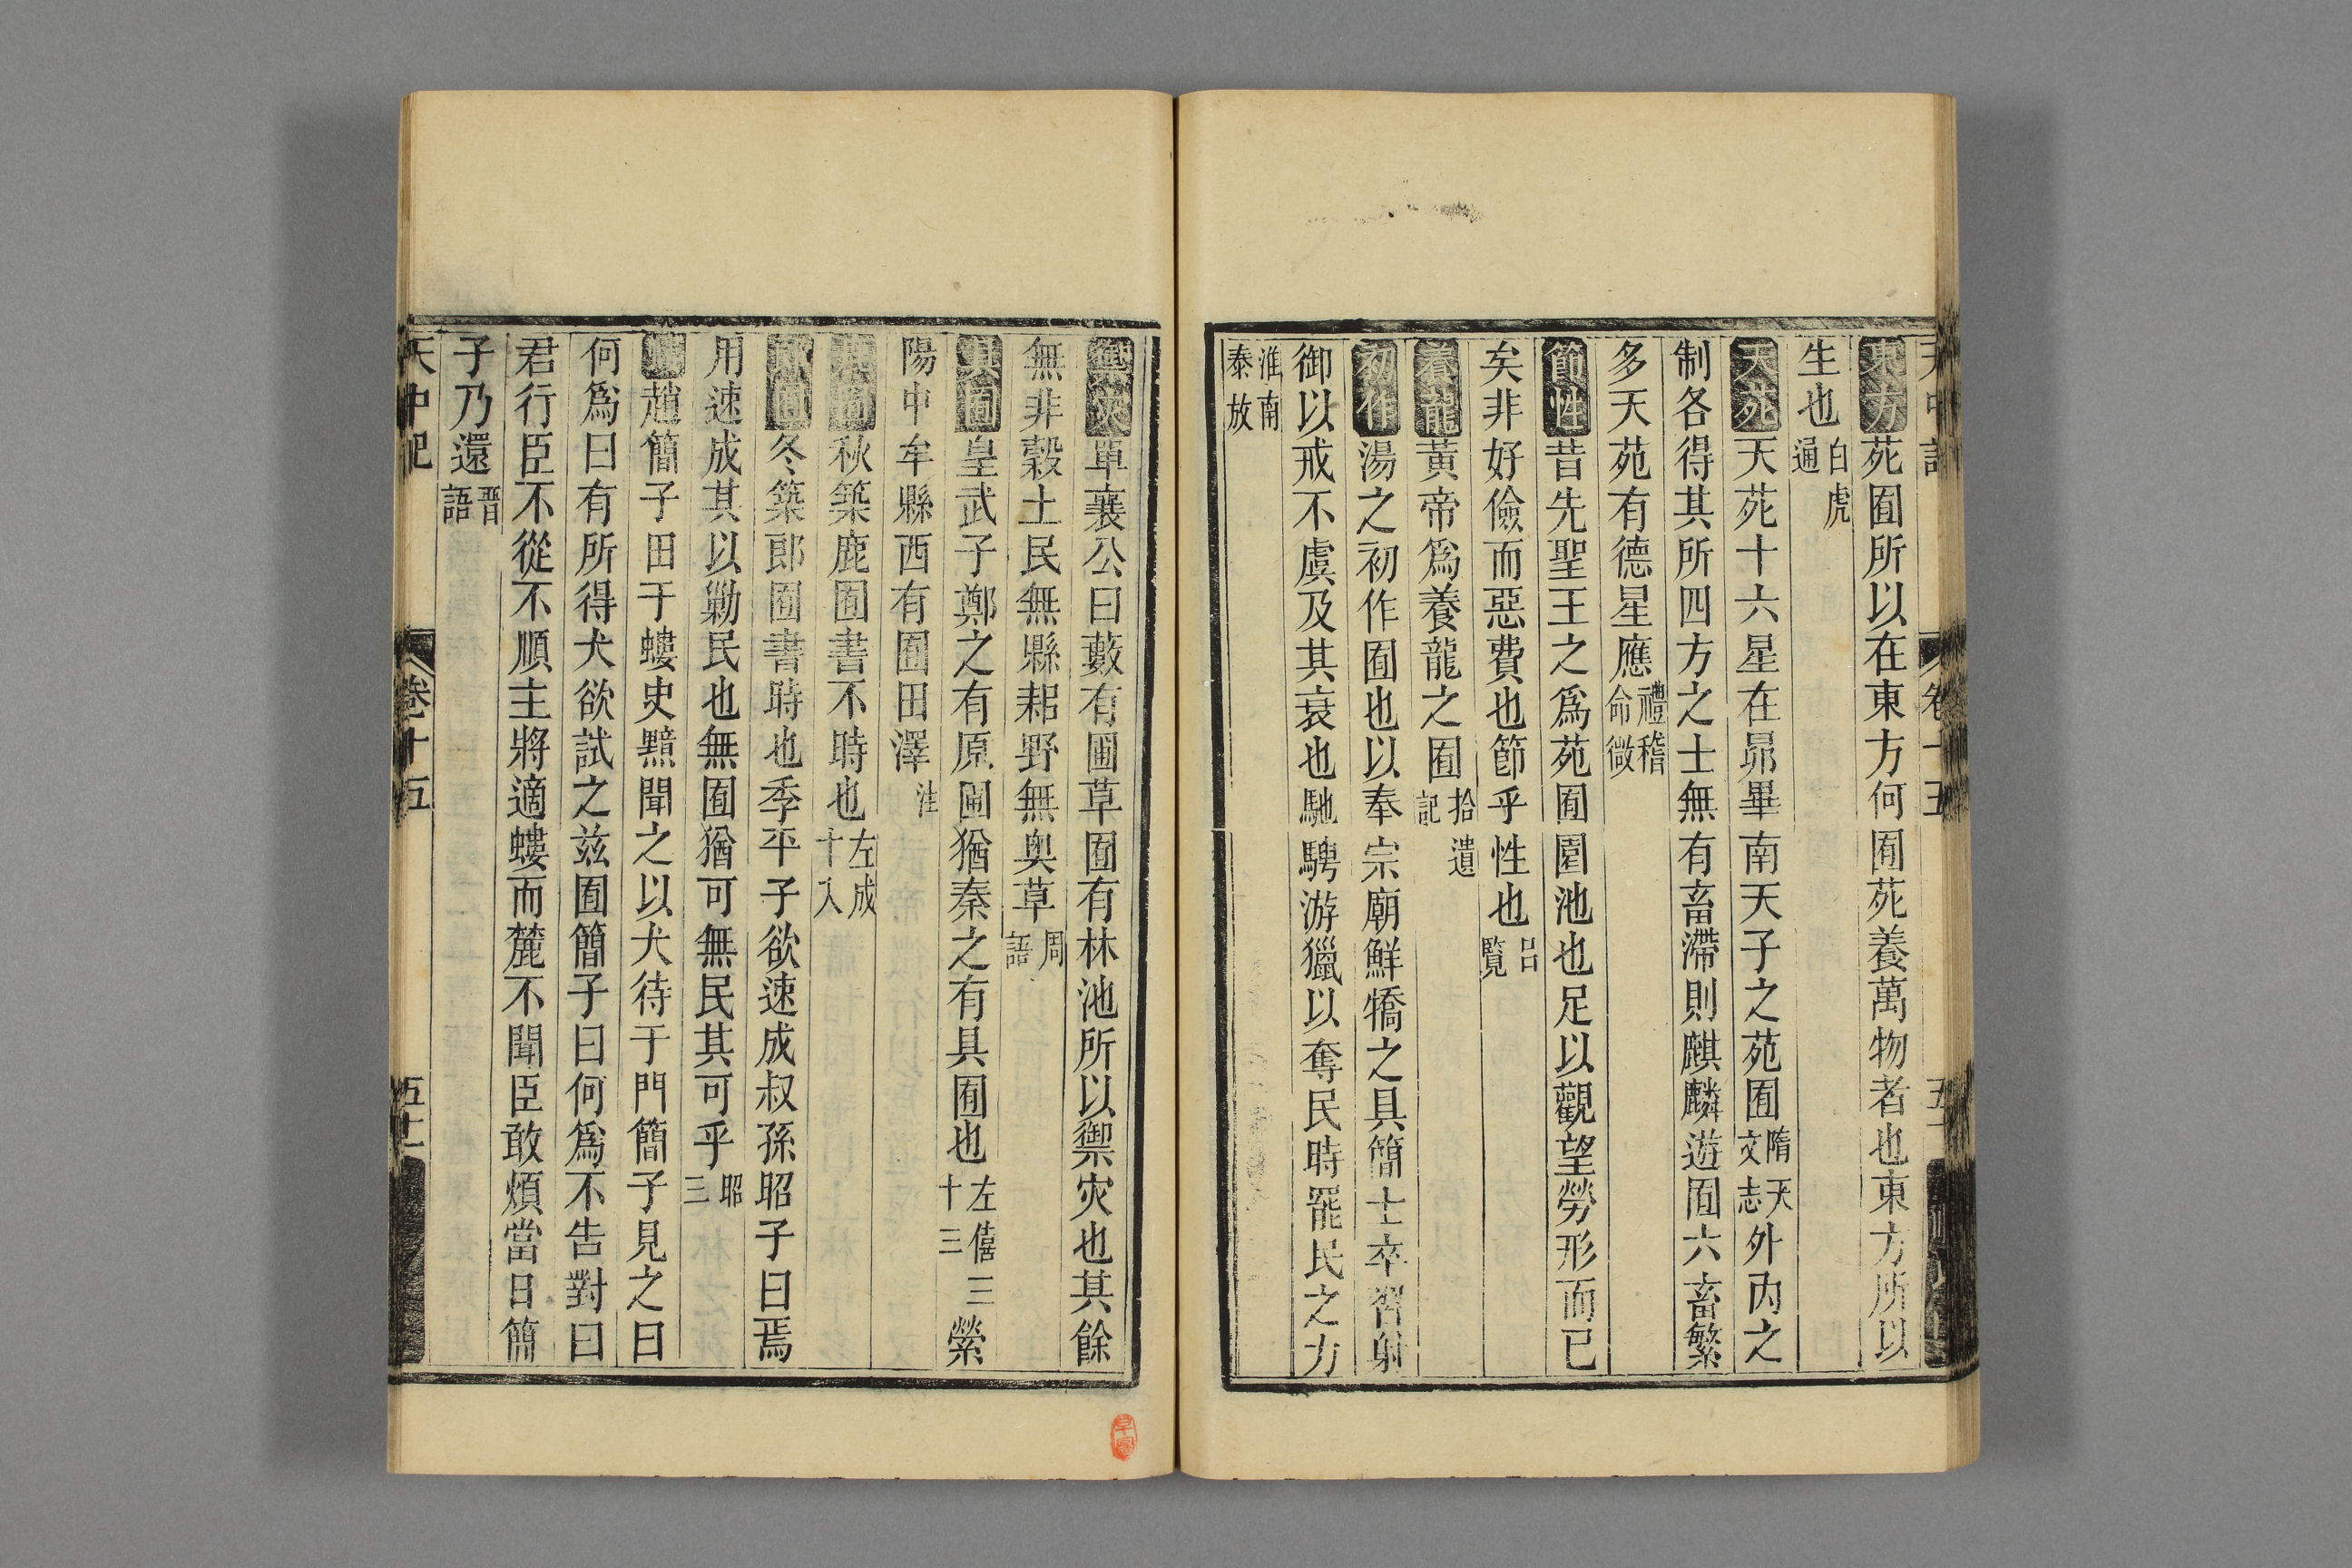 東方苑囿所以在東方何囿苑養萬物者也東方所以
生也白虎通
天苑天苑十六星在昴畢南天子之苑囿隋天文志外內之
制各得其所四方之士無有畜滯則麒麟遊囿六畜繁
多天苑有德星應禮稽命徵
節性昔先聖王之爲苑囿園池也足以觀望勞形而已
矣非好儉而惡費也節乎性也呂覽
養龍黃帝爲養龍之囿拾遺記
初作湯之初作囿也以奉宗廟鮮犞之具簡士卒習射
御以戒不虞及其衰也馳騁游獵以奪民時罷民之力
淮南泰放
禦灾單襄公曰藪有圃草囿有林池所以禦灾也其餘
無非穀土民無縣耜野無奥草周語
具囿皇武子鄭之有原圃猶秦之有具囿也左僖三十三縈
陽中牟縣西有圃田澤注
鹿囿秋築鹿囿書不時也左成十八
郎囿冬築郎囿書時也季平子欲速成叔孫昭子曰焉
用速成其以勦民也無囿猶可無民其可乎昭三
趙簡子田于螻史黯聞之以犬待于門簡子見之曰
何爲曰有所得犬欲試之兹囿簡子曰何爲不告對曰
君行臣不從不順主將適螻而麓不聞臣敢煩當日簡
子乃還晋語
天中記
卷十五
五十一